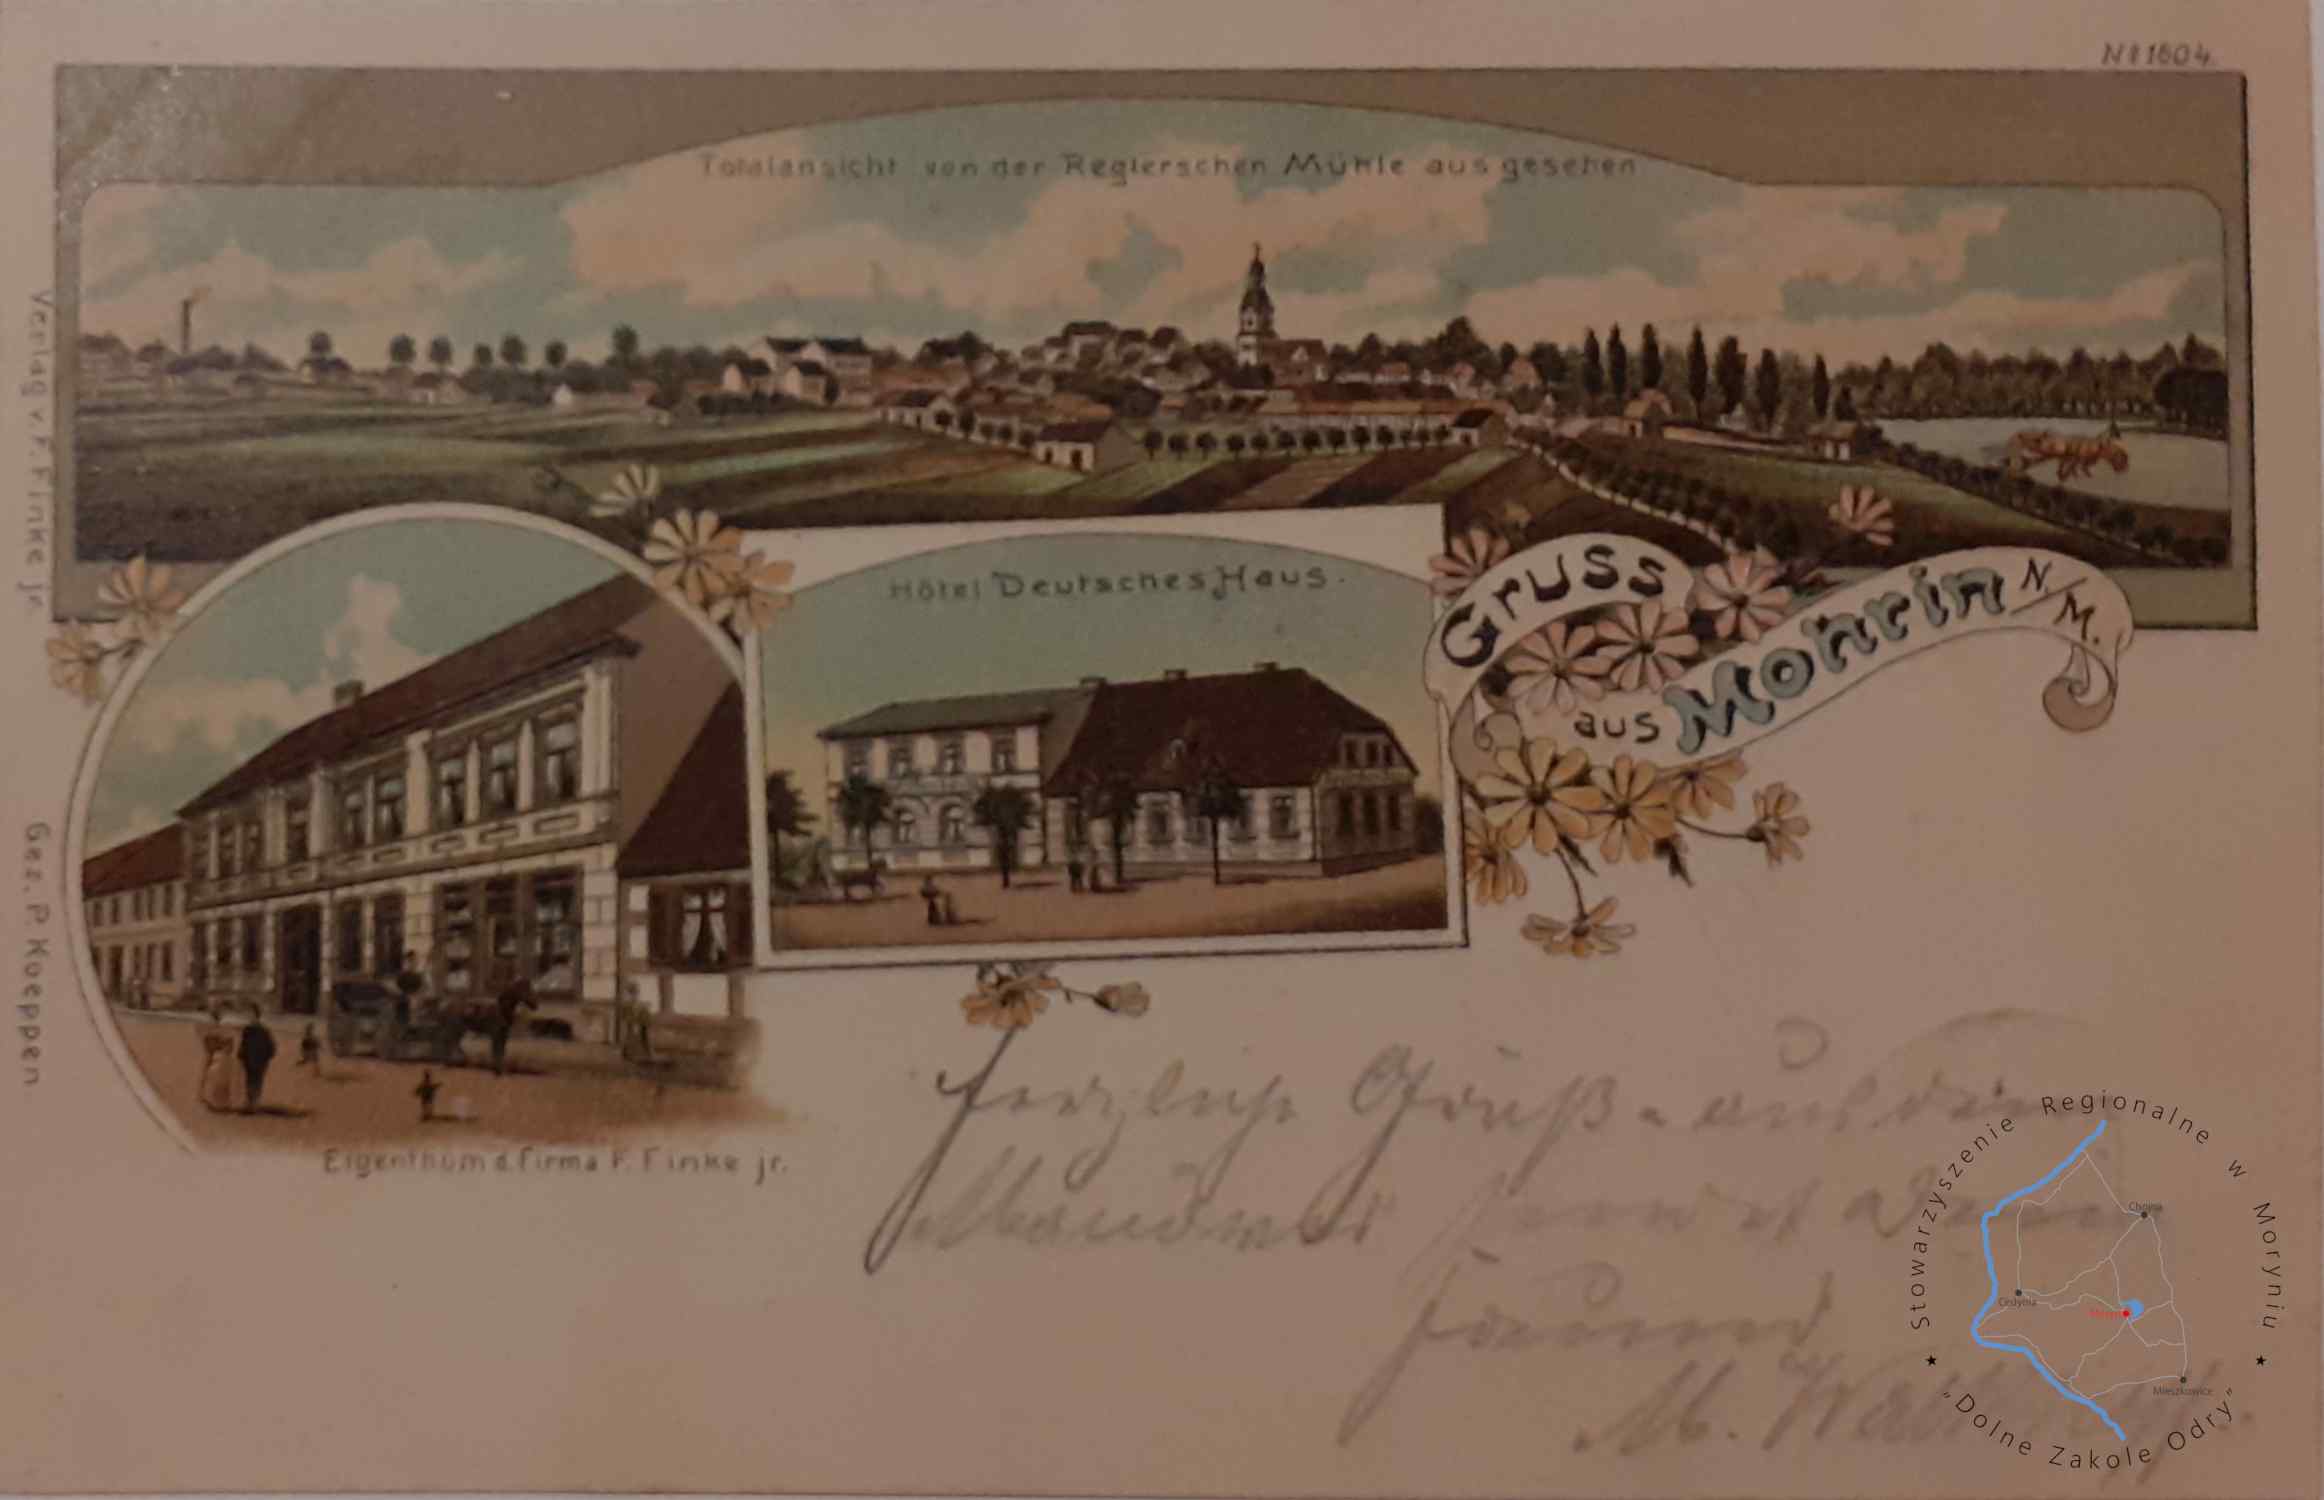 No 1604.
Totalansicht von der Reglerschen Mühle aus gesehen
Verlag v. F. Finke jr.
Gez. P. Koeppen.
Hôtel Deutsches Haus.
Gruss
aus Mohrin N/M.
Eigenthum d. Firma F. Finke jr.
Herzliche Gruß aus dem
Manöver
Freund
M.
Stowarzyszenie Regionalne w Moryniu
"Dolne Zakole Odry"
Chojna
Cedynia
Moryń
Mieszkowice